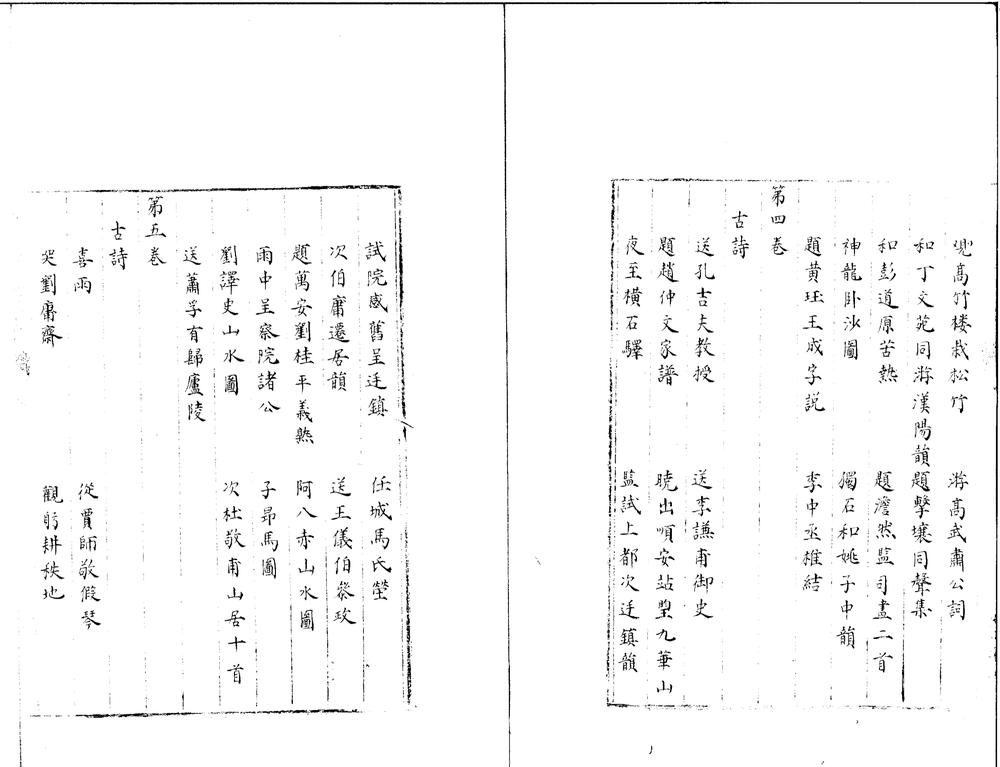 兜高竹楼栽松竹　游高武肅公詞
和丁文苑同游漢陽韻　題擊壤同聲集
和彭道原苦熱　題澹然監司畫二首
神龍卧沙圖　獨石和姚子中韻
題黄珏王成字説　李中丞椎結
第四卷
古詩
送孔吉夫教授　送李謙甫御史
題趙仲文家譜　曉出順安站望九華山
夜至横石驛　監試上都次迂鎮韻
試院感舊呈迂鎮　任城馬氏塋
次伯庸遷居韻　送王儀伯叅政
題萬安劉桂平義㷼　阿八赤山水圖
雨中呈察院諸公　子昻馬圖
劉譯史山水圖　次杜敬甫山居十首
送蕭孚有歸廬陵
第五卷
古詩
喜雨　從賈師敬假琴
哭劉庸齋　觀肹耕秧地